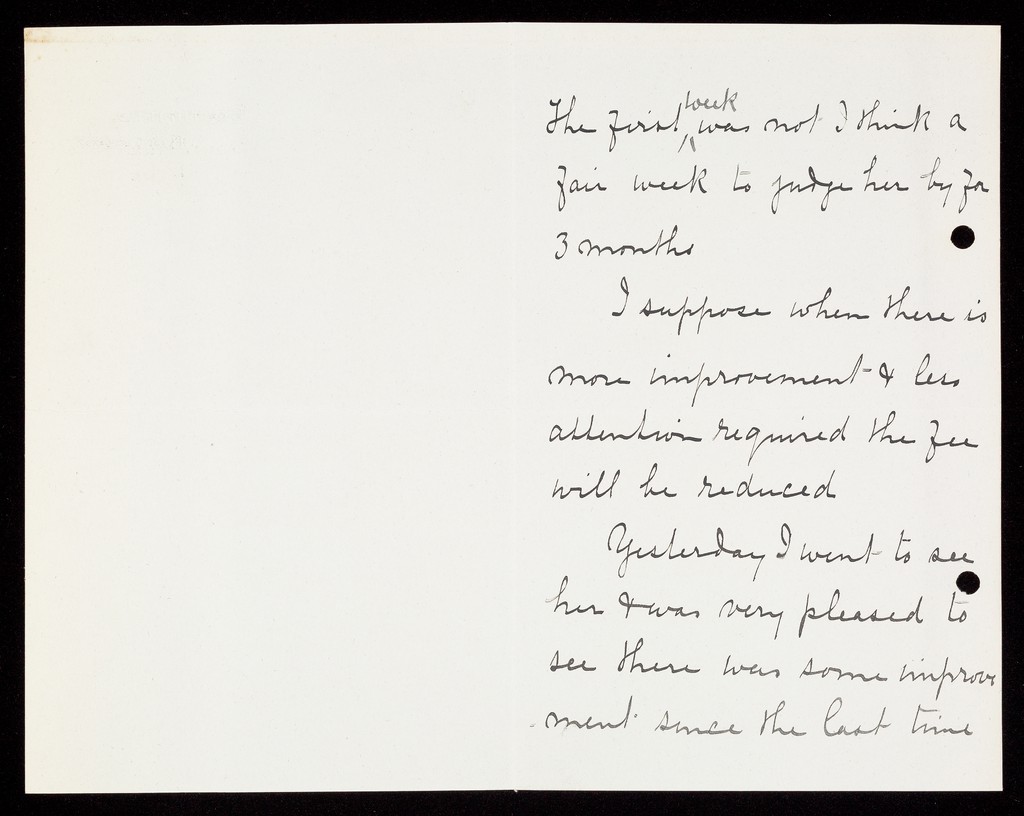 The first week was not I think a
fair week to judge her by for
3 months
I suppose when there is
more improvement & less
attention required the fee
will be reduced
Yesterday I went to see
her & was very pleased to
see there was some improve
-ment since the last time